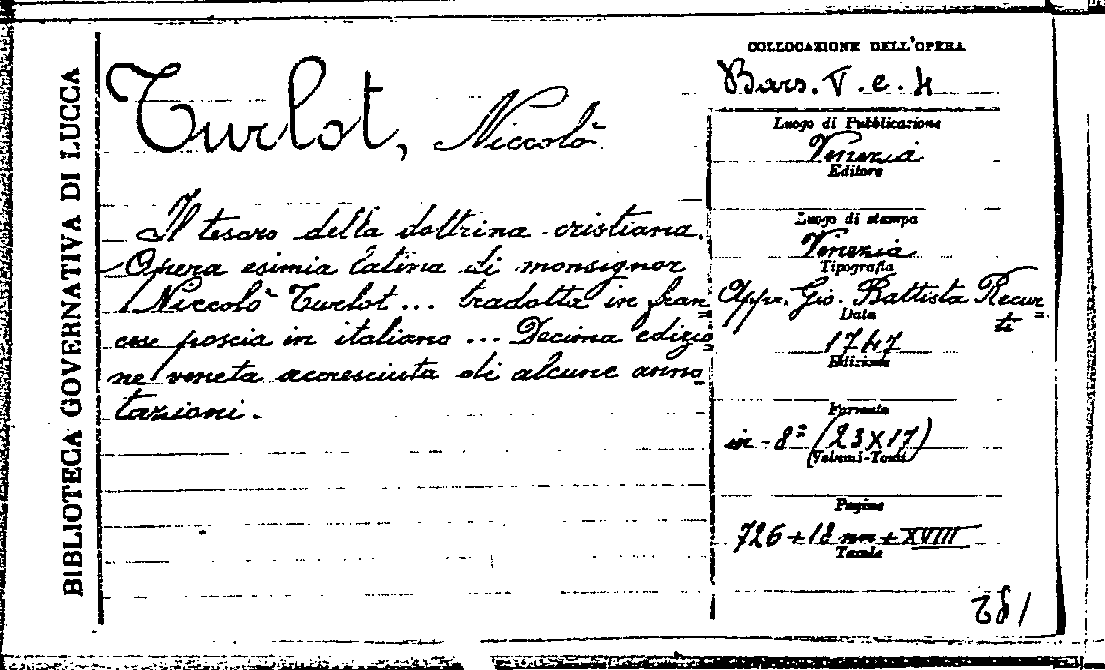 BIBLIOTECA GOVERNATIVA DI LUCCA
Turlot, Niccolò
Il tesoro della dottrina cristiana.
Opera esimia latina di monsignor
Niccolò Turlot... tradotta in fran
cese poscia in italiano ... Decima edizio
ne veneta accresciuta di alcune anno
tazioni.
COLLOCAZIONE DELL'OPERA
Bars. V. e. 4
Luogo di Pubblicazione
Venezia
Editore
Luogo di stampa
Venezia
Tipografia
Appr. Gio. Battista Recur=
ti
Data
1747
Edizione
Formato
in-8º (23X17)
(Volumi-Tomi)
Pagine
726+12 nn+XVIII
Tavole